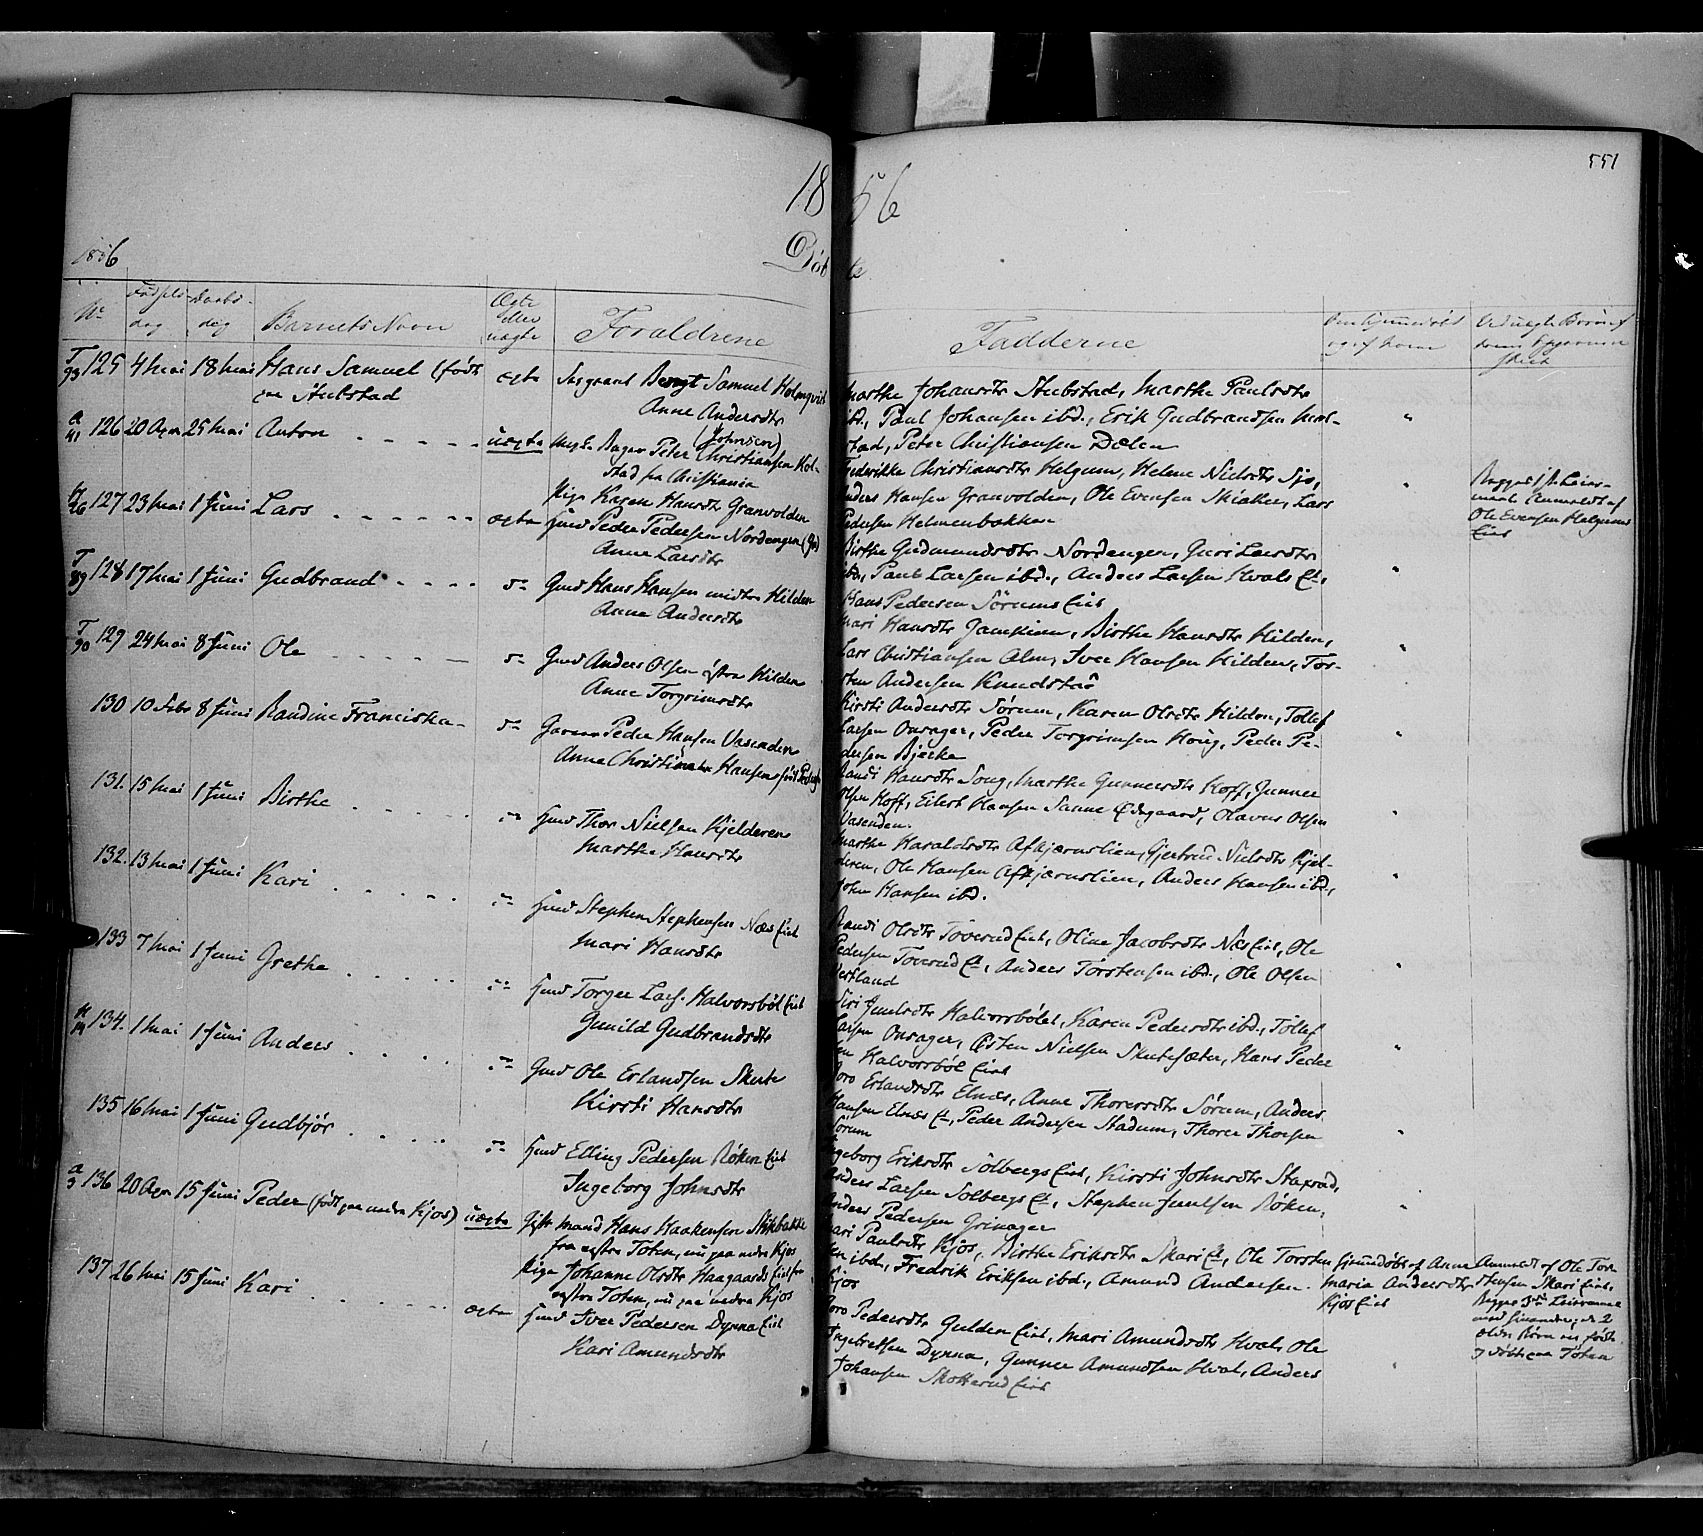 551
18 56
1856
Døb te
No Fødsels dag Daabs dag Barnets Navn Ægte eller uægte Forældrene
Fadderne
Om hjemmedøbt og af hvem
T 93 125 4 Mai 18 Mai Hans Samuel (født paa Stubstad ægte Sergeant Bengt Samuel Holmqvist
Anne Andersdtr
Marthe Johansdtr Stubstad, Marthe Paulsdtr
ibd., Paul Johansen ibd., Erik Gudbrandsen
Peter Christiansen Dælen
a 41 126 20 Apr 25 Mai Anton uægte Ungk. Bager Peder Christiansen (Johnsen)
stad fra Christiania
Pige Karen Hansdtr Granvolden
Frederikke Christiansdtr Helgum, Helene Nielsdtr Sjo,
Anders Hansen Granvolden, Ole Evensen Skiaker, Lars
Pedersen Helmenbakken
Begges 1ste Leiermaal Anmeldt af
Ole Evensen Helgums
Eiet
127 23 Mai 1 Juni Lars ægte Gmd Peder Pedersen Nordengen
Anne Larsdtr
Birthe Gudmundsdtr Nordengen, Guri Larsdtr
ibd., Paul Larsen ibd., Anders Larsen Hvals Et,
Hans Pedersen Sørums Eiet
T 89 128 17 Mai 1 Juni Gudbrand Gmd Hans Hansen midtre Hilden
Anne Andersdtr
Mari Hansdtr, Birthe Hansdtr Hilden,
Lars Christiansen Alm, Iver Hansen Hilden, Tor-
sten Andersen Knudstad
T 90 129 24 Mai 8 Juni Ole Gmd Anders Olsen østre Hilden
Anne Torgrimsdtr
Kirsti Andersdtr Sørum, Karen Olsdtr Hilden, Tollef
Larsen Onsager, Peder Torgrimsen Houg, Peder Pe-
dersen Bjerke
130 10 Febr 8 Juni Randine Franciska Peder Hansen Vasenden
Anne Christine Hansen født Peders
Randi Hansdtr Song, Marthe Gunnersdtr Hoff, Gunner
Olsen Hoff, Eilert Hansen Sanne Ødegaard, Olavus Olsen
Vasenden.
131. 15 Mai 1 Juni Birthe Gmd Thor Nielsen Kjelderen
Marthe Hansdtr
Marthe Haraldsdtr Askjærnslien, Gjertrud Nielsdtr Kjel-
deren, Ole Hansen Askjærnslien, Anders Hansen ibd.,
John Hansen ibd.
132. 13 Mai 1 Juni Kari Hmd Stephen Stephensen Næs Eiet
Mari Hansdtr
Randi Olsdtr Toverud Eiet, Oline Jacobsdtr Næs Eiet, Ole
Pedersen Toverud Et, Anders Torstensen ibd., Ole Olsen
Vestland
133 7 Mai 1 Juni Grethe Hmd Torger Lars. Halvorsbøl Eiet
Gunild Gudbrandsdtr
Siri Juulsdtr Halvorsbølet, Karen Pedersdtr ibd., Tollef
Larsen Onsager, Østen Nielsen Skutesæter, Hans Peder
sen Halvorsbøl Eiet
134. 1 Mai 1 Juni Anders Gmd Ole Erlandsen Skute
Kirsti Hansdtr
Goro Erlandsdtr Elnæs, Anne Thoresdtr Sørum, Anders
Hansen Elnæs Et, Peder Andersen Stadum, Thorer Thorsen
Sørum
135 16 Mai 1 Juni Gudbjør Hmd Elling Pedersen Røken Eiet
Ingeborg Johnsdtr
Ingeborg Eriksdtr Solbergs Eiet, Kirsti Johnsdtr Staxrud,
Anders Larsen Solbergs Et, Stephen Juulsen Røken,
Anders Pedersen Grinager
a 3 136 20 Apr 15 Juni Peder (født paa nedre Kjos) uægte Gift Mand Hans Haakensen Skikbakke
fra østre Toten, nu paa nedre Kjos
Pige Johanne Olsdtr Haagaards Eiet fra
østre Toten, nu paa nedre Kjos
Mari Paulsdtr Kjos, Birthe Eriksdtr Skari Et, Ole Torsten
sen ibd., Fredrik Eriksen ibd., Amund Andersen
Kjos
Hjemmedøbt af Anne
Maria Andersdtr
Kjos Eiet
Anmeldt af Ole Tor-
stensen Skari Eiet,
Begges 3die Leiermaal
med hinanden, de 2
ældre Børn er født
og døbt paa Toten
137 26 Mai 15 Juni Kari ægte Hmd Iver Pedersen Dynna Eiet
Kari Amundsdtr
Goro Pedersdtr Gulden Eiet, Mari Amundsdtr Hval, Ole
Ingebretsen Dynna, Gunner Amundsen Hval, Anders
Johansen Skotterud Eiet